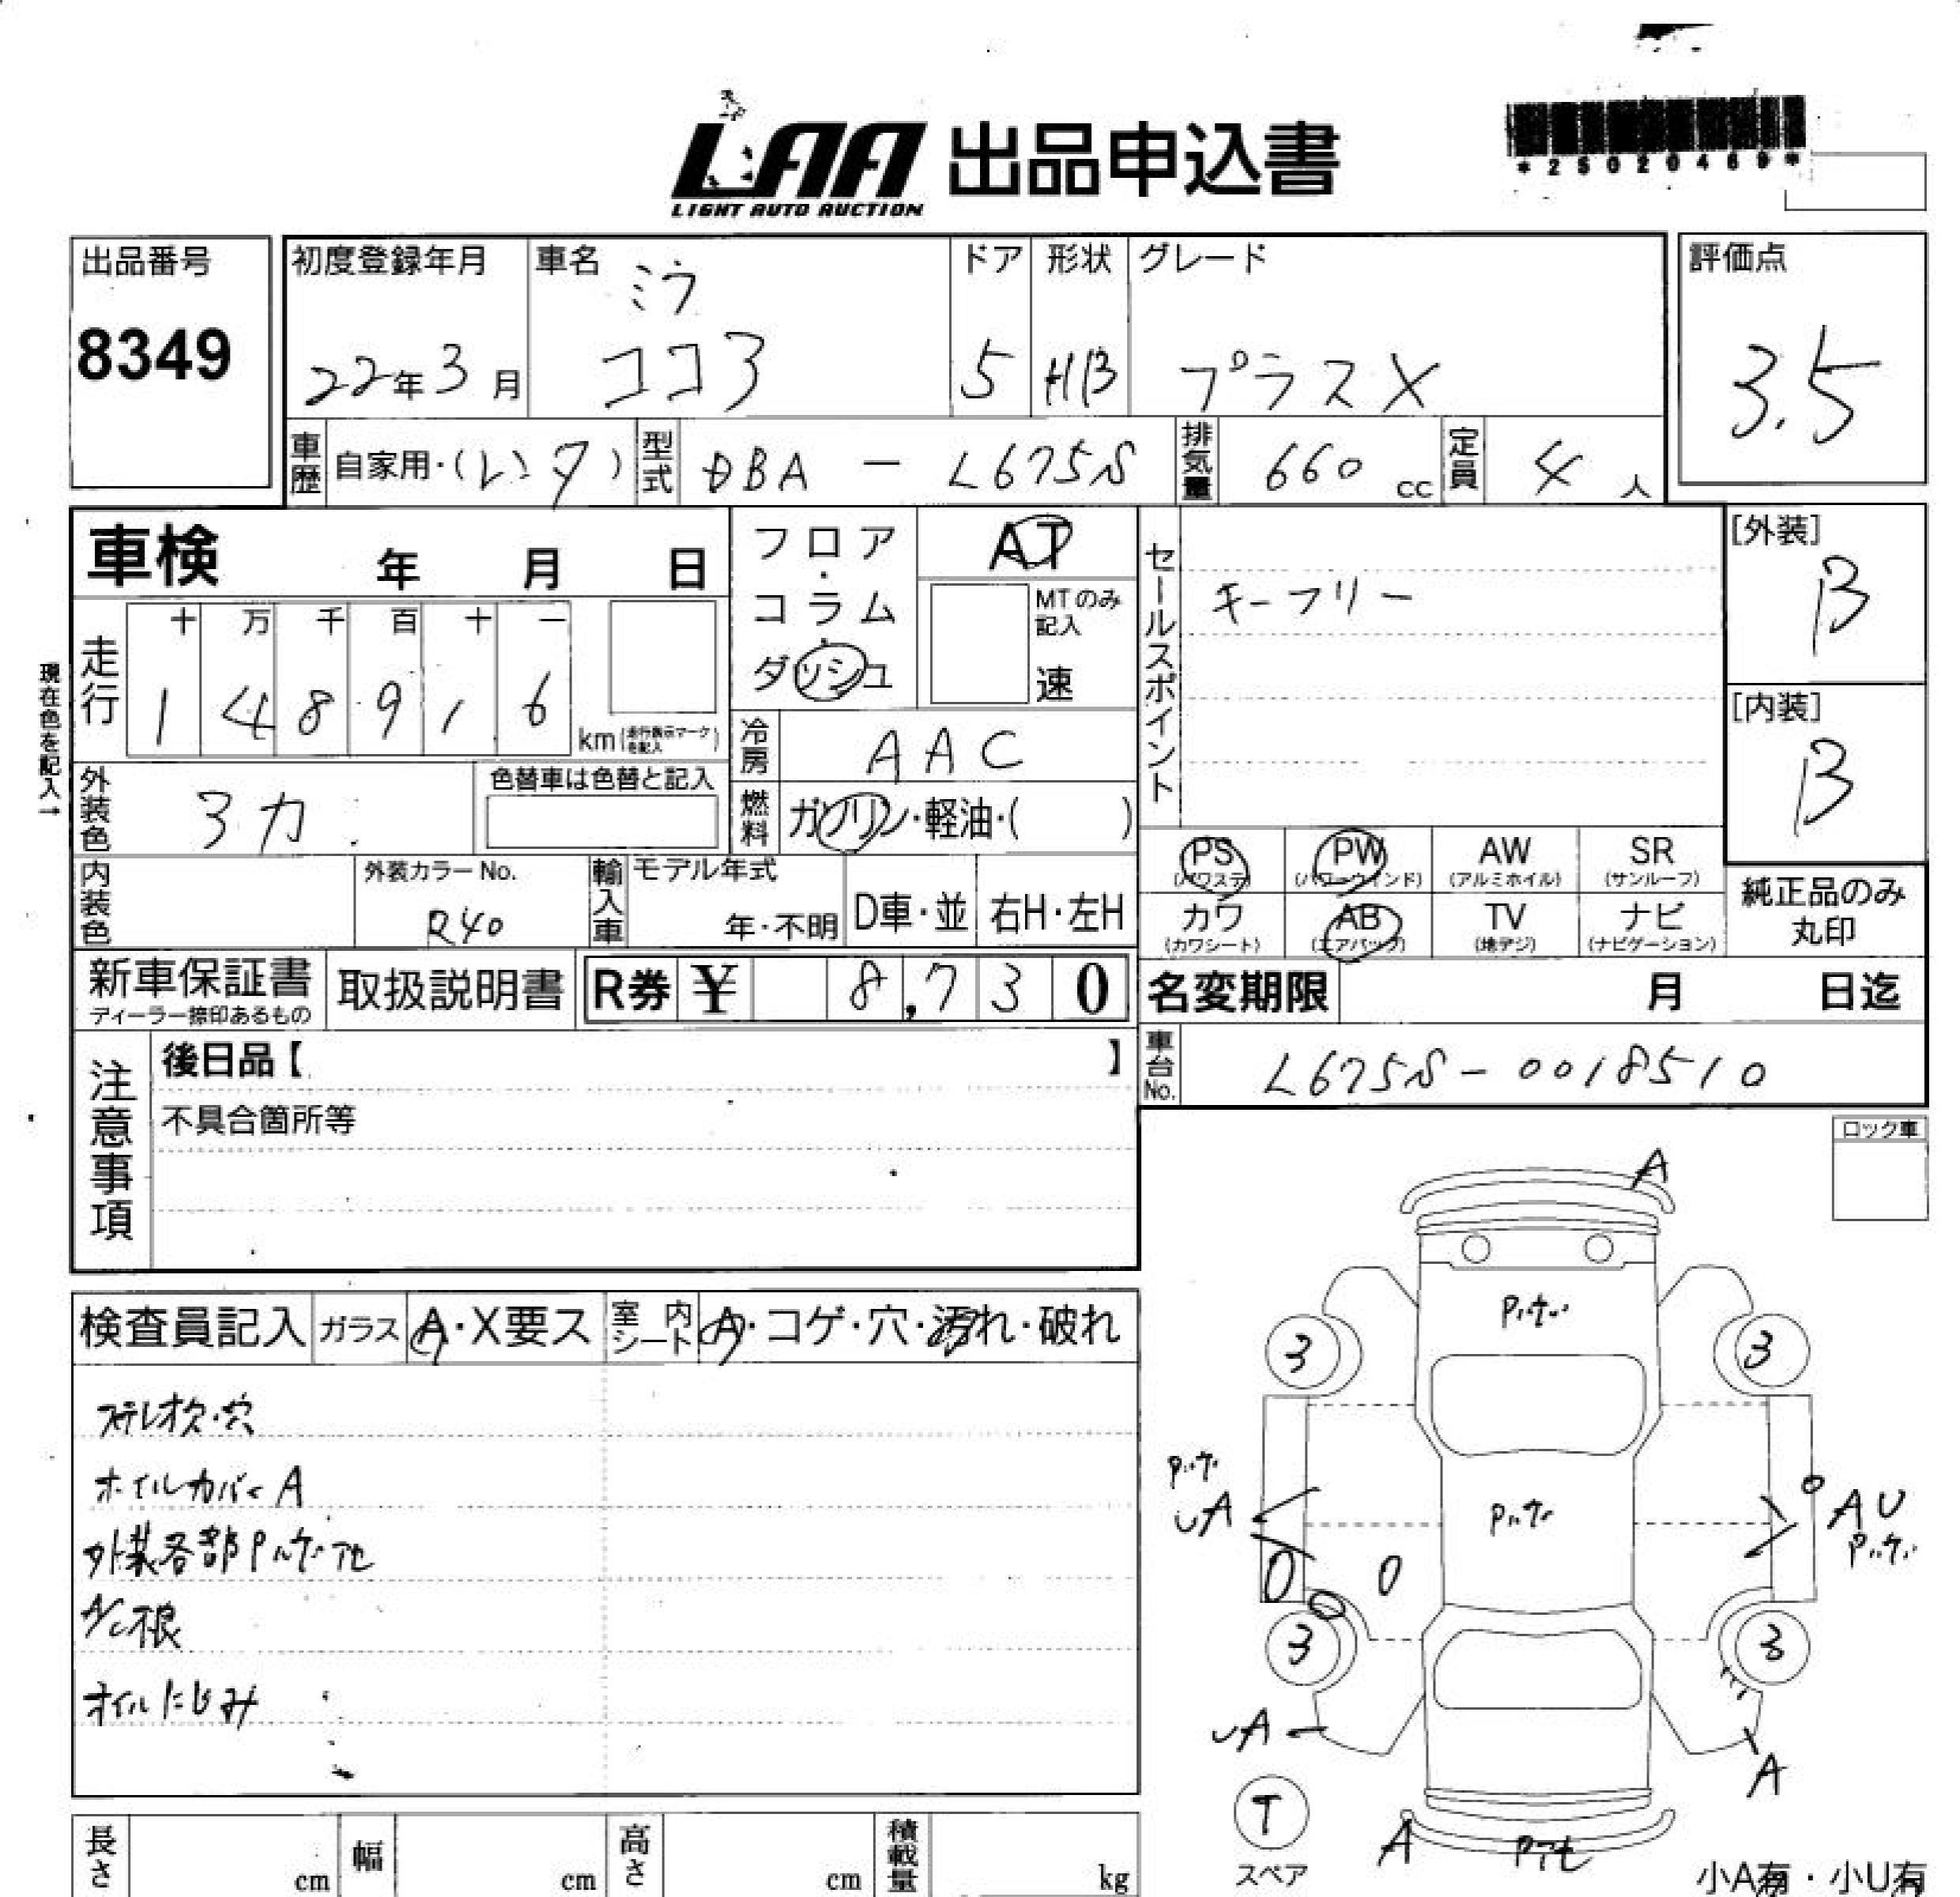 LAA 出品申込書
LIGHT AUTO AUCTION
*25020469*
出品番号
8349
初度登録年月
22年3月
車名
ミラ
ココア
ドア
5
形状
HB
グレード
プラスX
評価点
3.5
車歴
自家用・(レンタ)
型式
DBA - L675S
排気量
660 cc
定員
4 人
車検 年 月 日
フロア・コラム・ダッシュ
AT
MTのみ記入
速
セールスポイント
キーフリー
[外装]
B
[内装]
B
現在色を記入→
走行
十 万 千 百 十 一
1 4 8 9 1 6
km(走行表示マークを記入)
冷房
AAC
外装色
色替車は色替と記入
燃料
ガソリン・軽油・( )
PS (パワステ)
PW (パワーウィンド)
AW (アルミホイル)
SR (サンルーフ)
カワ (カワシート)
AB (エアバッグ)
TV (地デジ)
ナビ (ナビゲーション)
純正品のみ
丸印
内装色
外装カラーNo.
R40
輸入車
モデル年式
年・不明
D車・並
右H・左H
新車保証書
ディーラー捺印あるもの
取扱説明書
R券 ¥ 8,730
名変期限 月 日迄
車台No.
L675S-0018510
注意事項
後日品【 】
不具合箇所等
ロック車
検査員記入
ガラス
A・X要ス
室内シート
A・コゲ・穴・汚れ・破れ
ステレオ欠・穴
ホイルカバーA
外装各部Pハゲ・アセ
オイルにじみ
A
3
3
A
A U
3
3
A
A
T
スペア
A
小A有・小U有
長さ cm
幅 cm
高さ cm
積載量 kg